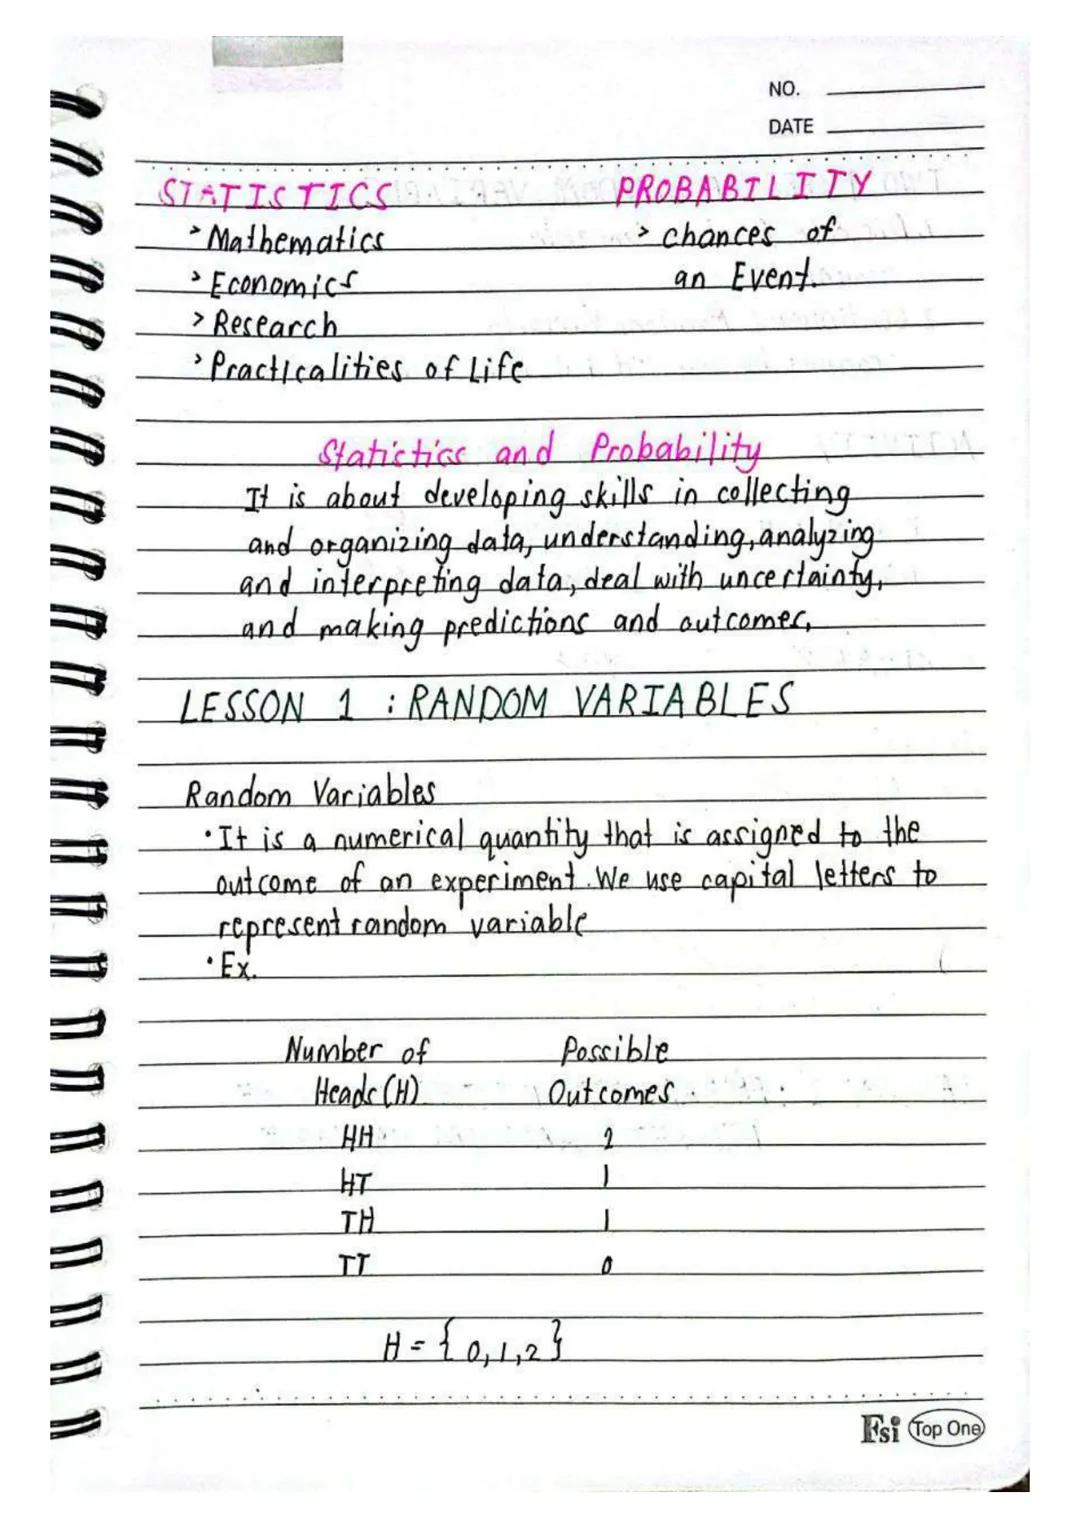 NO.
DATE
STATISTICS PROBABILITY
> Mathematics > chances of
> Economics an Event.
> Research
> Practicalities of Life
Statistics and Probability
It is about developing skills in collecting
and organizing data, understanding, analyzing
and interpreting data, deal with uncertainty,
and making predictions and outcomes,
LESSON 1 : RANDOM VARIABLES
Random Variables
• It is a numerical quantity that is assigned to the
outcome of an experiment. We use capital letters to
represent random variable
• Ex.
Number of Possible
Heads (H) Outcomes
HH 2
HT 1
TH 1
TT 0
H = {0,1,2}
Fsi Top One